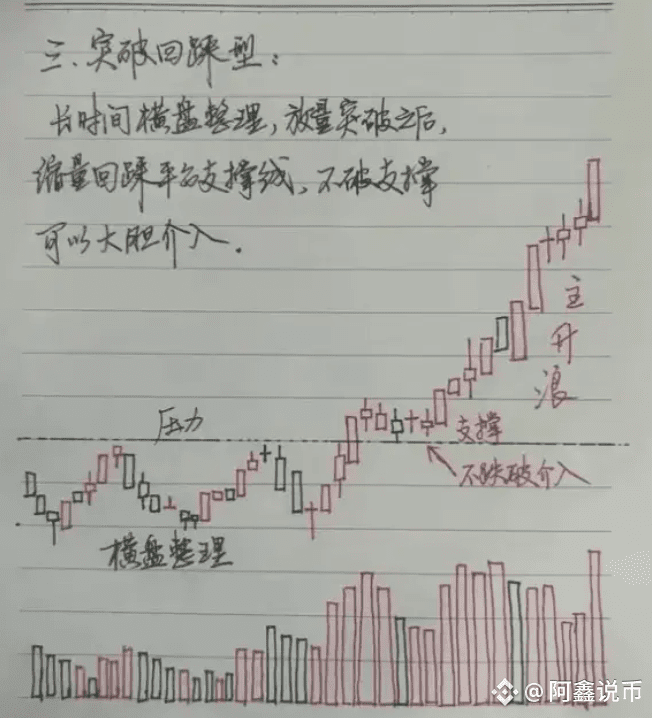 三、突破回踩型：
长时间横盘整理，放量突破之后，
缩量回踩平台支撑线、不破支撑
可以大胆介入．
主升浪
压力
支撑
不跌破介入
横盘整理
@阿鑫说币